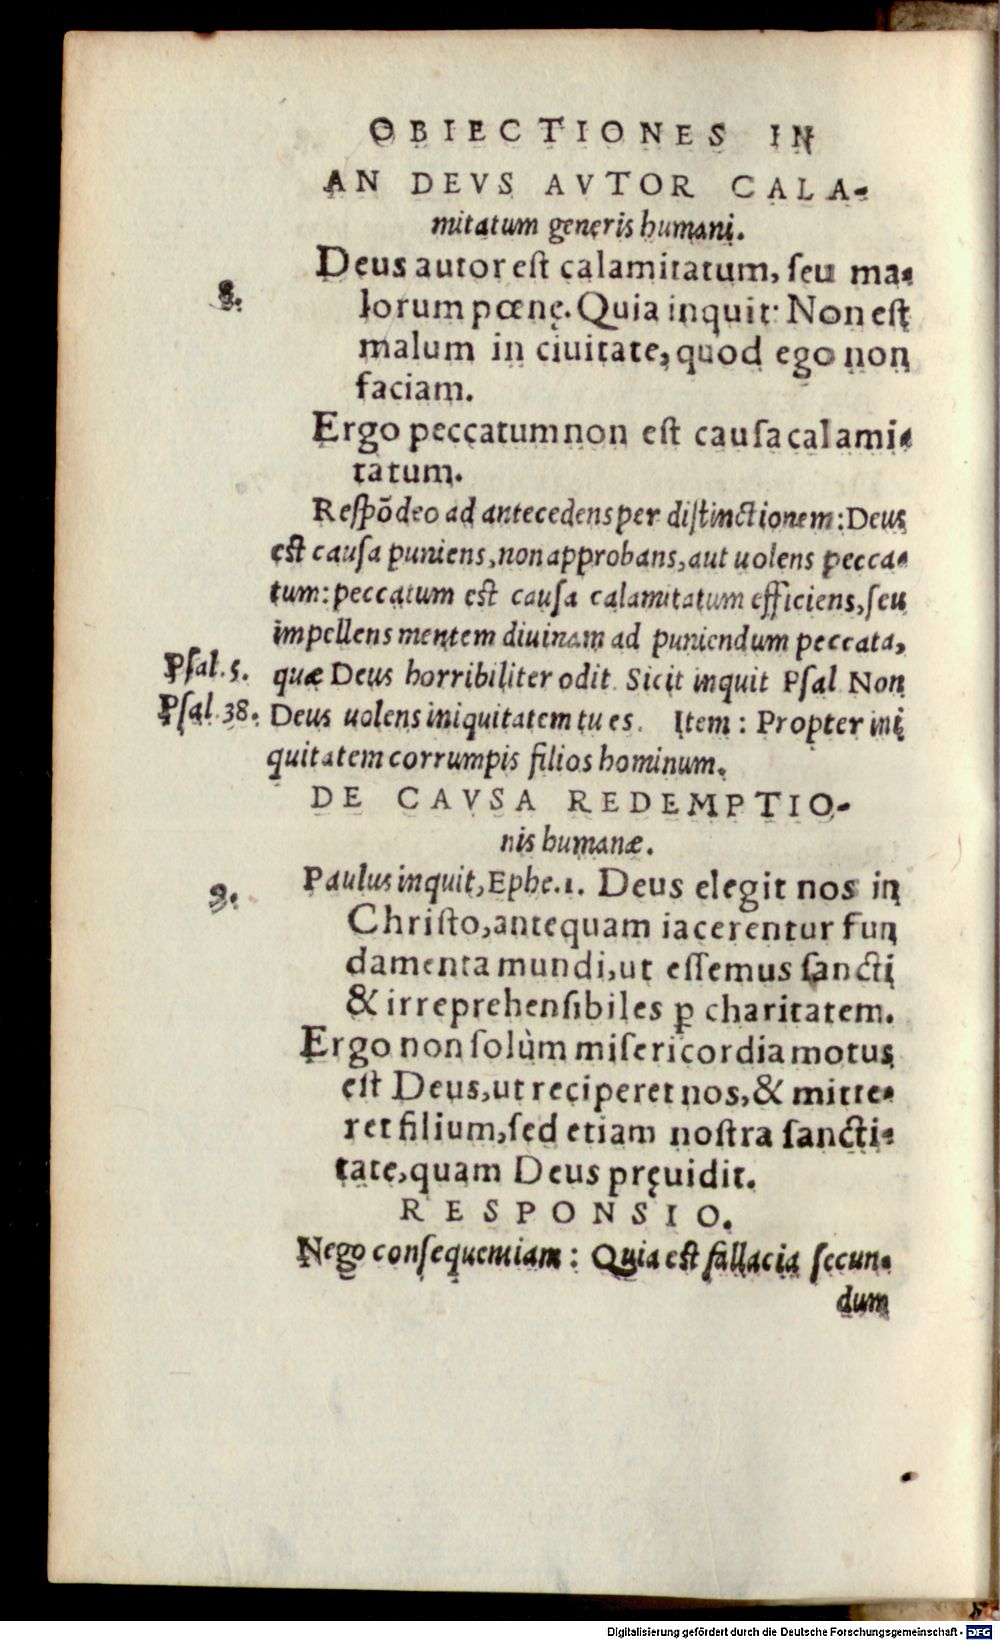 OBIECTIONES IN
AN DEVS AVTOR CALA-
mitatum generis humani.
8.
Deus autor est calamitatum, seu ma-
lorum pœnę. Quia inquit: Non est
malum in ciuitate, quod ego non
faciam.
Ergo peccatum non est causa calami-
tatum.
Respõdeo ad antecedens per distinctionem: Deus
est causa puniens, non approbans, aut uolens pecca-
tum: peccatum est causa calamitatum efficiens, seu
impellens mentem diuinam ad puniendum peccata,
Psal. 5.
quæ Deus horribiliter odit. Sicit inquit Psal. Non
Psal. 38.
Deus uolens iniquitatem tu es. Item: Propter ini
quitatem corrumpis filios hominum.
DE CAVSA REDEMPTIO-
nis humanæ.
9.
Paulus inquit, Ephe. 1. Deus elegit nos in
Christo, antequam iacerentur fun
damenta mundi, ut essemus sancti
& irreprehensibiles ꝑ charitatem.
Ergo non solùm misericordia motus
est Deus, ut reciperet nos, & mitte-
ret filium, sed etiam nostra sancti-
tate, quam Deus pręuidit.
RESPONSIO.
Nego consequentiam: Quia est fallacia secun-
dum
Digitalisierung gefördert durch die Deutsche Forschungsgemeinschaft - DFG